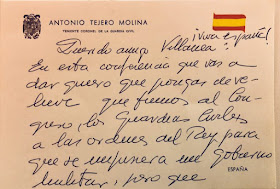 ANTONIO TEJERO MOLINA
TENIENTE CORONEL DE LA GUARDIA CIVIL
¡Viva españa!
Querido amigo Villanea:
En esta conferencia que vas a
dar quiero que pongas de re-
lieve que fuimos al Con-
greso, los Guardias Civiles
a las ordenes del Rey para
que se impusiera un gobierno
militar, pero que
ESPAÑA